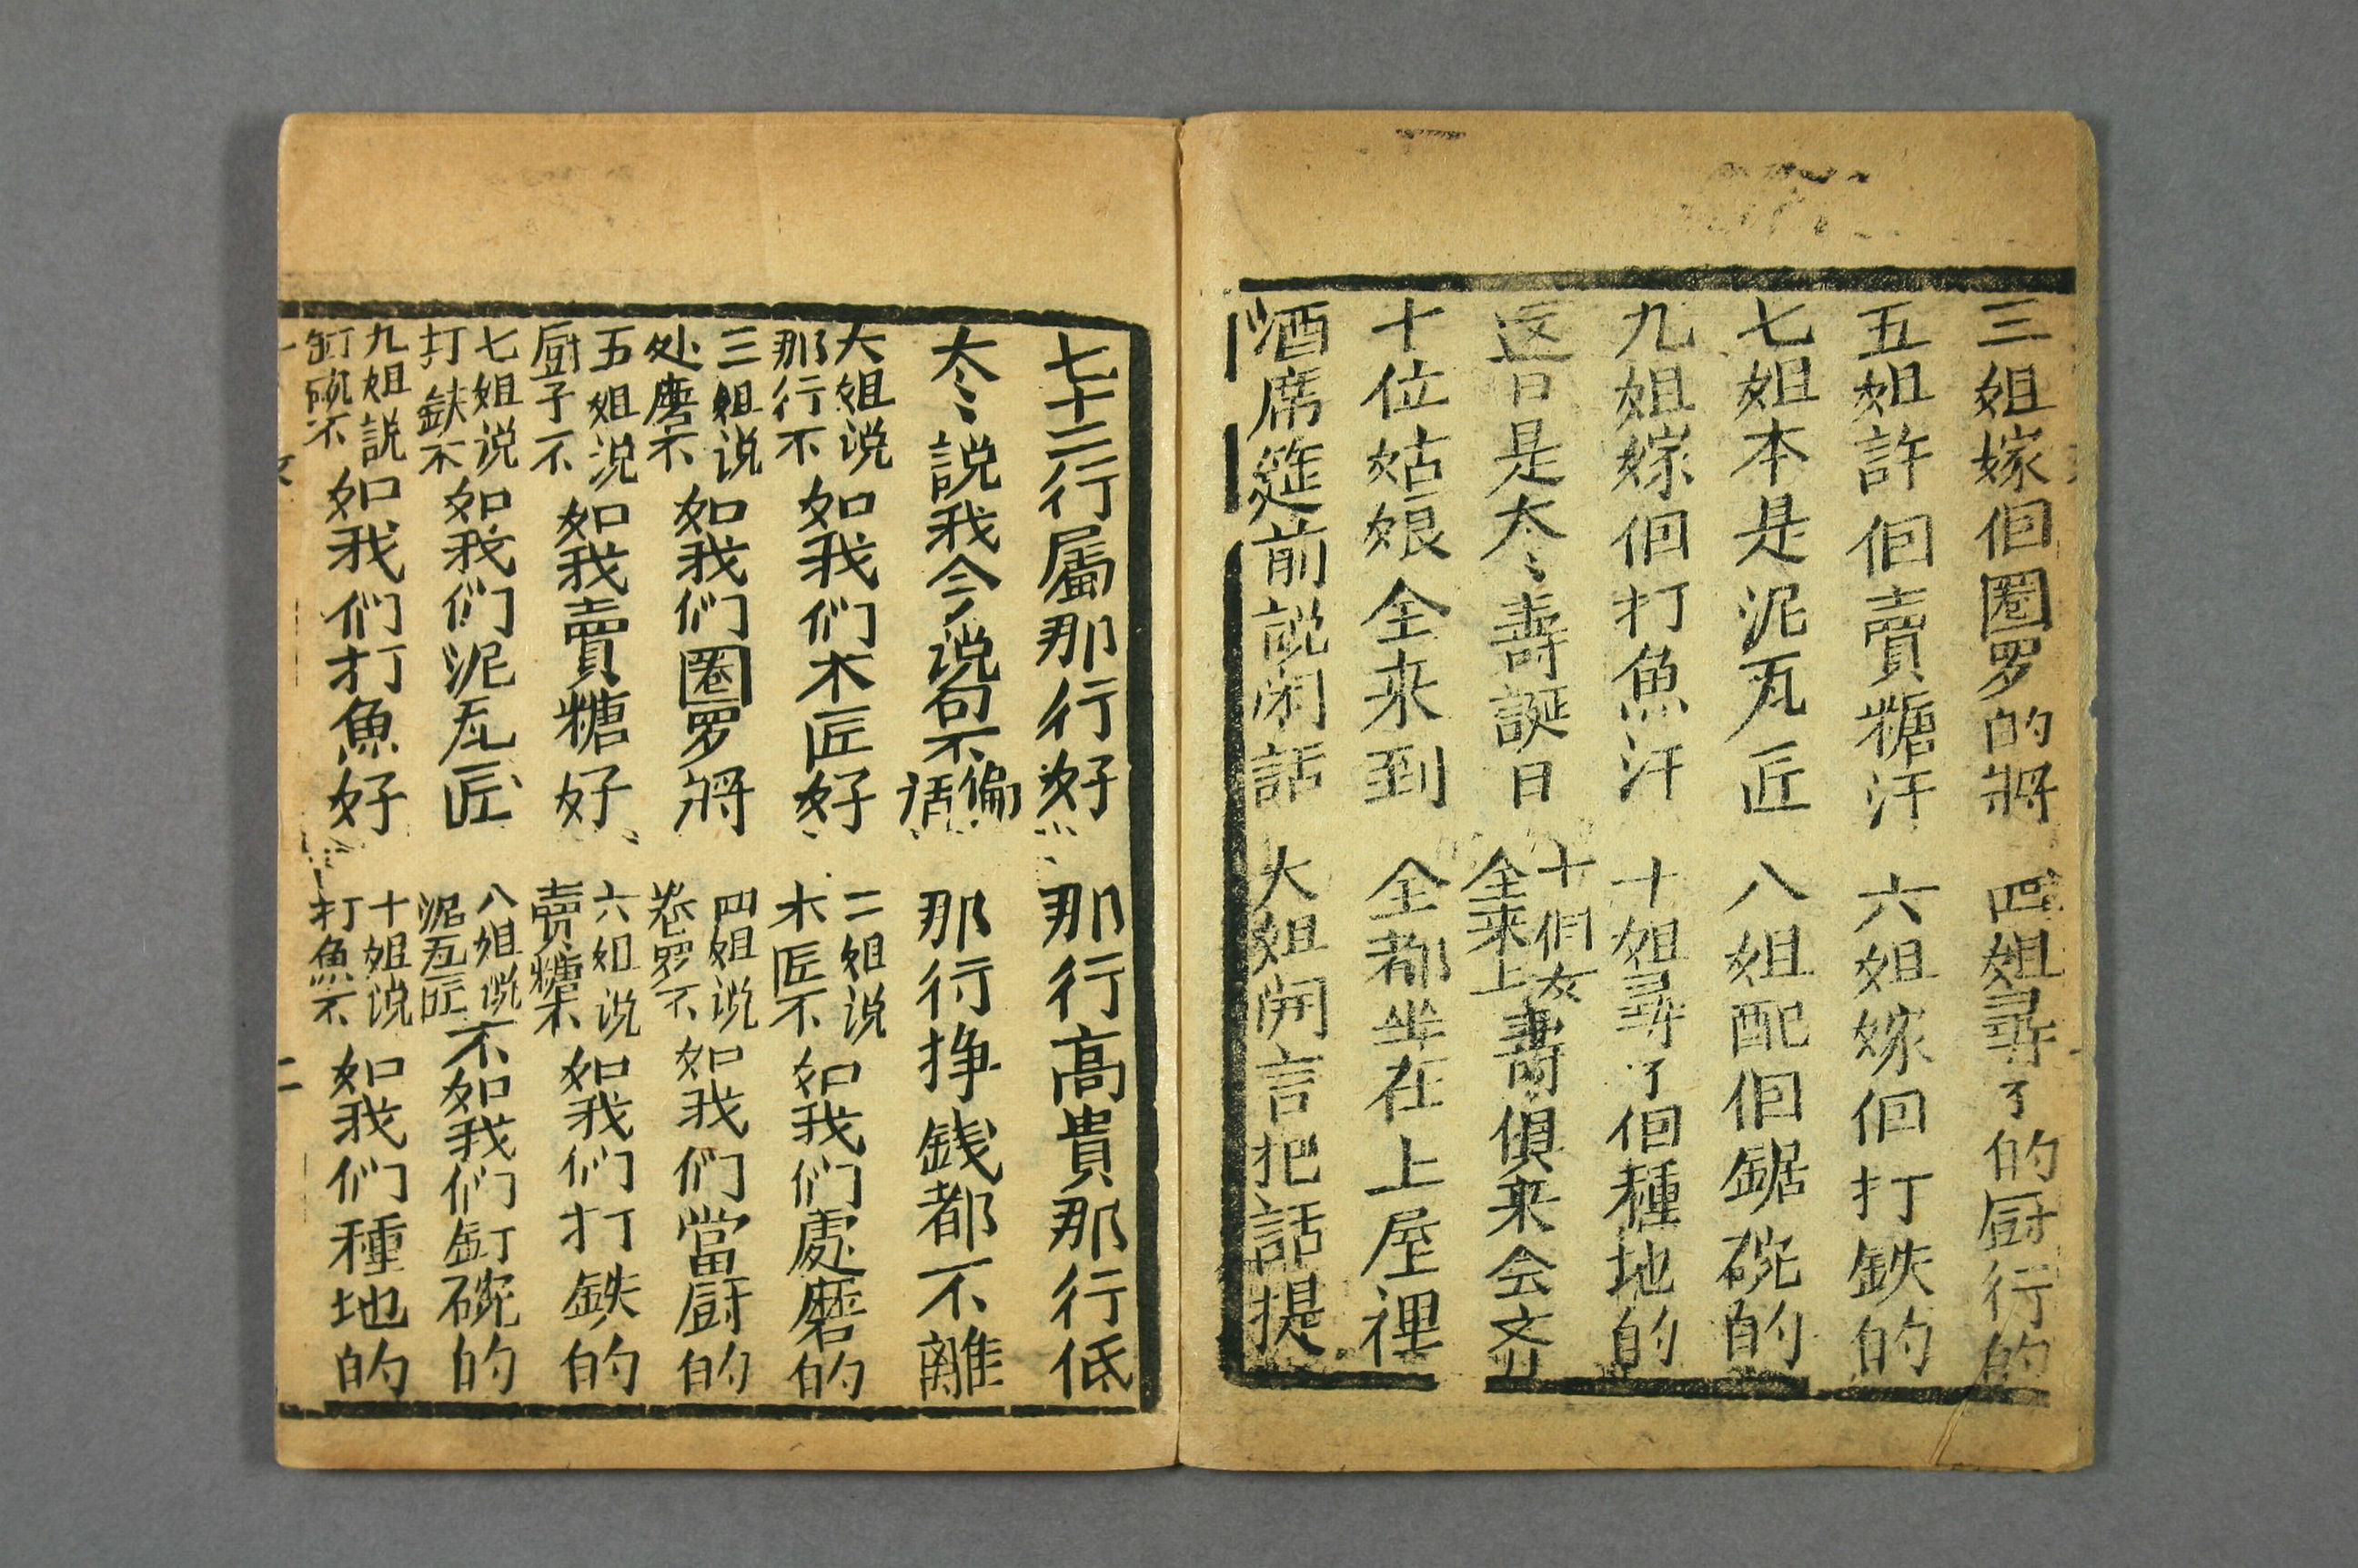 三姐嫁佪圈罗的將 四姐尋了的厨行的
五姐許佪賣糖汗 六姐嫁佪打鉄的
七姐本是泥瓦匠 八姐配佪鋸碗的
九姐嫁佪打魚汗 十姐尋了佪種地的
这日是太〻壽誕日 十佪女全来上壽俱来会齐
十位姑娘全来到 全都坐在上屋裡
酒席筵前説闲話 大姐開言把話提
七十二行屬那行好 那行高貴那行低
太〻説我今説句不偏話 那行挣錢都不離
大姐説那行不如我们木匠好 二姐说木匠不如我们處磨的
三姐说处磨不如我们圈罗將 四姐说卷罗不如我们當厨的
五姐说厨子不如我賣糖好 六姐说賣糖不如我们打鉄的
七姐说打鉄不如我们泥瓦匠 八姐说泥瓦匠不如我们釘碗的
九姐説釘碗不如我们打魚好 十姐说打魚不如我们種地的
二